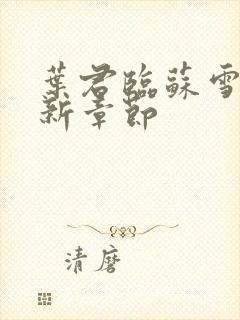 葉君臨蘇雪
新章節
清磨